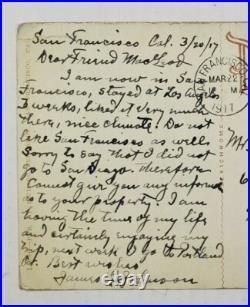 San Francisco Cal. 3/20/17
Dear Friend MacLeod
I am now in San
Francisco, stayed at Los Angeles
3 weeks, liked it very much
there, nice climate. Do not
like San Francisco as well.
Sorry to say that I did not
go to San Diago. therefore
Cannot give you any inform
as to your property. I am
having the time of my life
and certainly enjoying my
trip, next week I go to Portland
Or. Best wishes
James
SAN FRANCISCO
MAR 22
M
1917